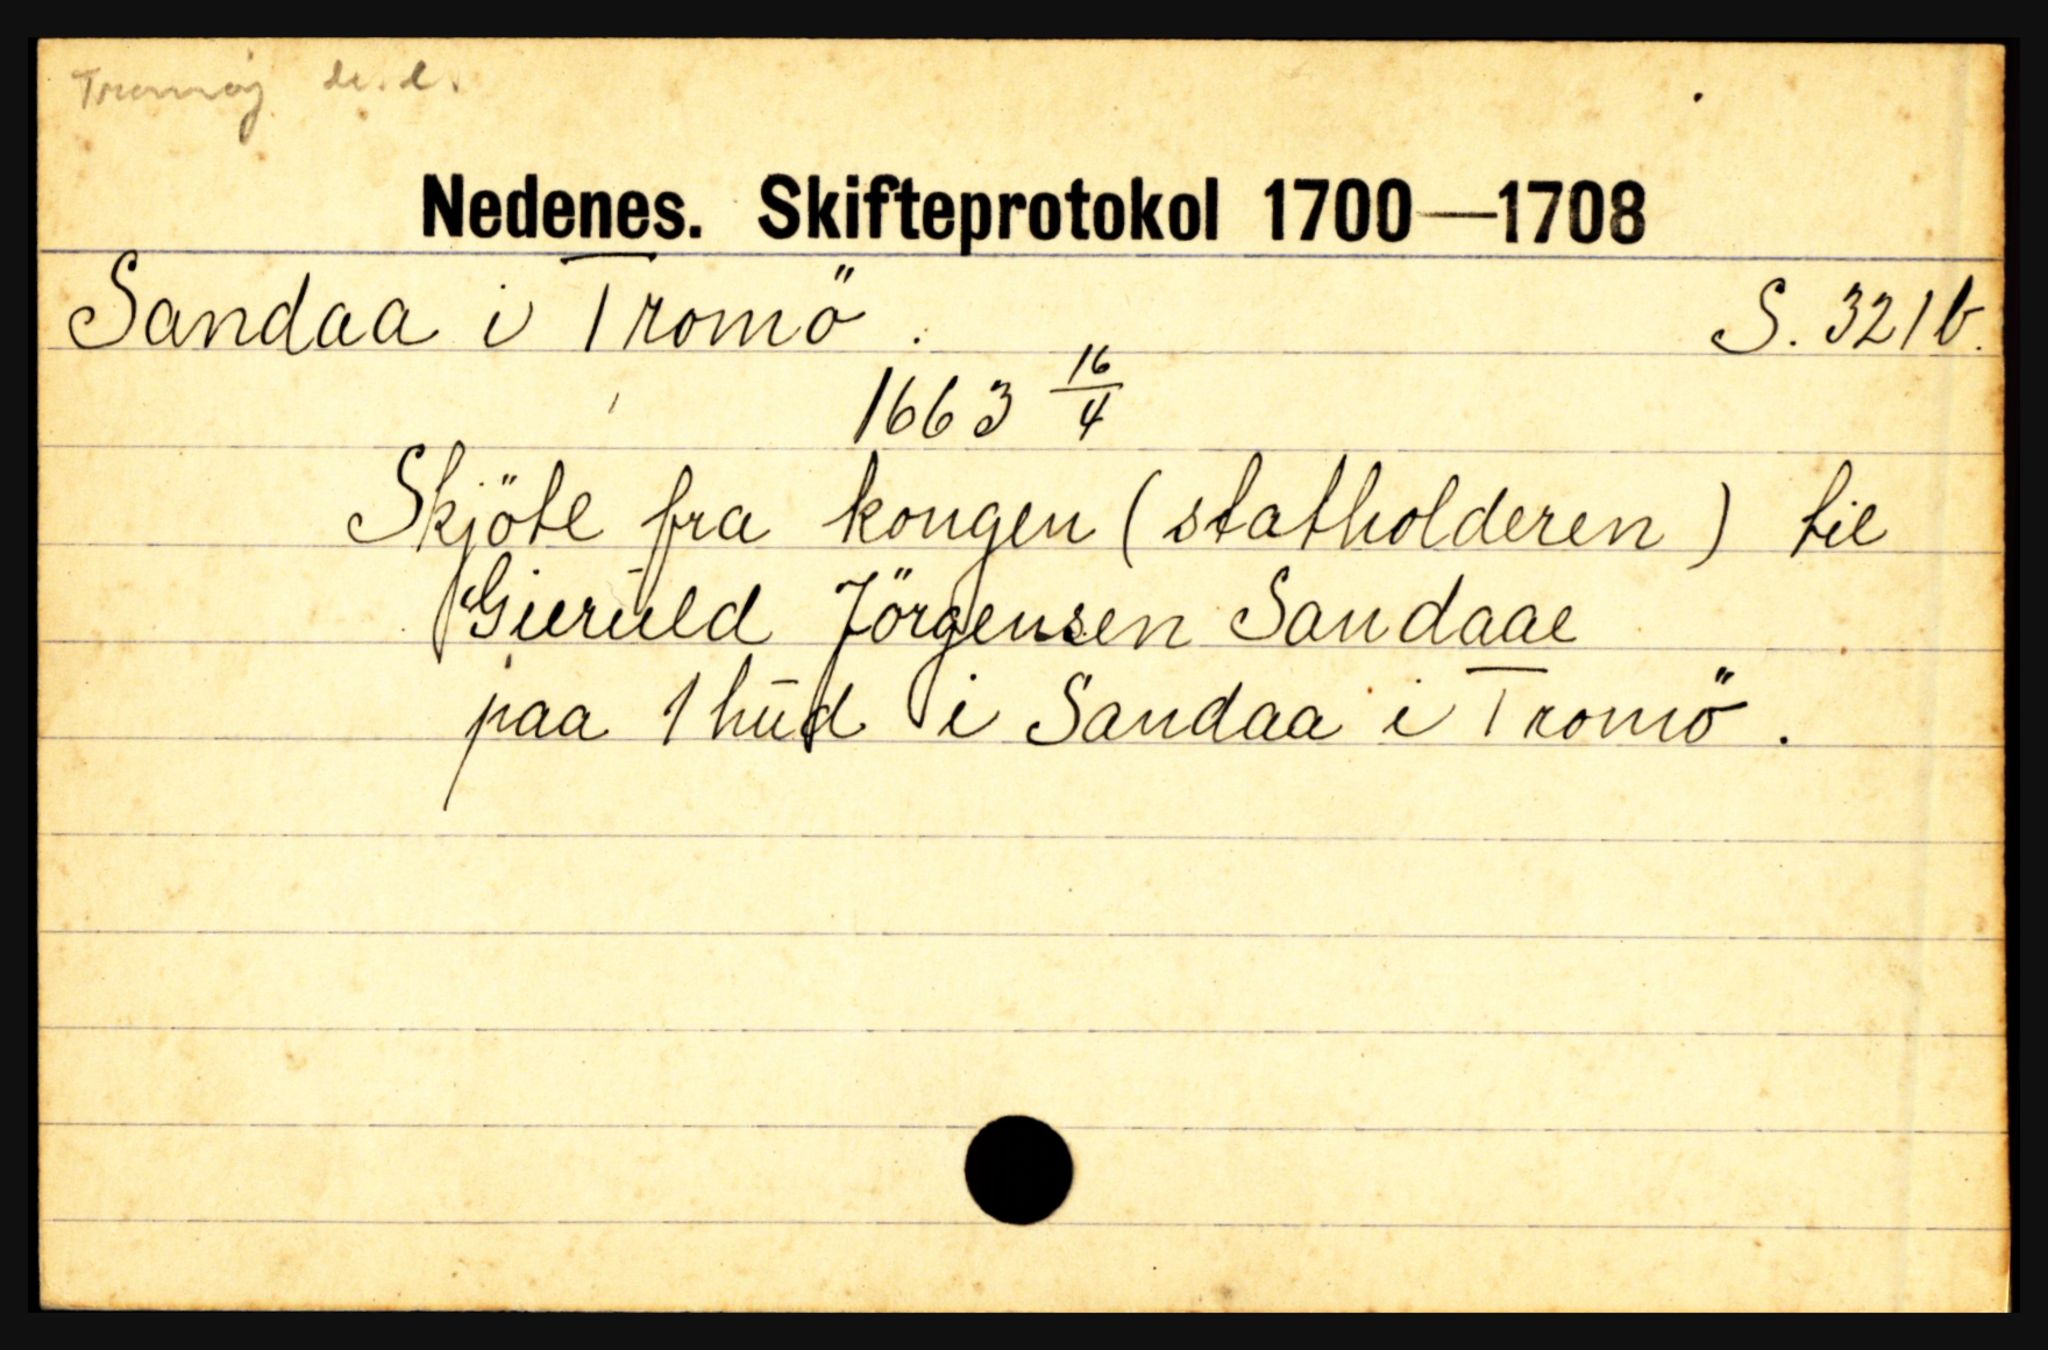 Tromøy
Nedenes. Skifteprotokol 1700—1708
Sandaa i Tromö. S. 321b.
1663 16/4
Skjöte fra kongen (statholderen) til
Gieruld Jörgensen Sandaae
paa 1 hud i Sandaa i Tromö.